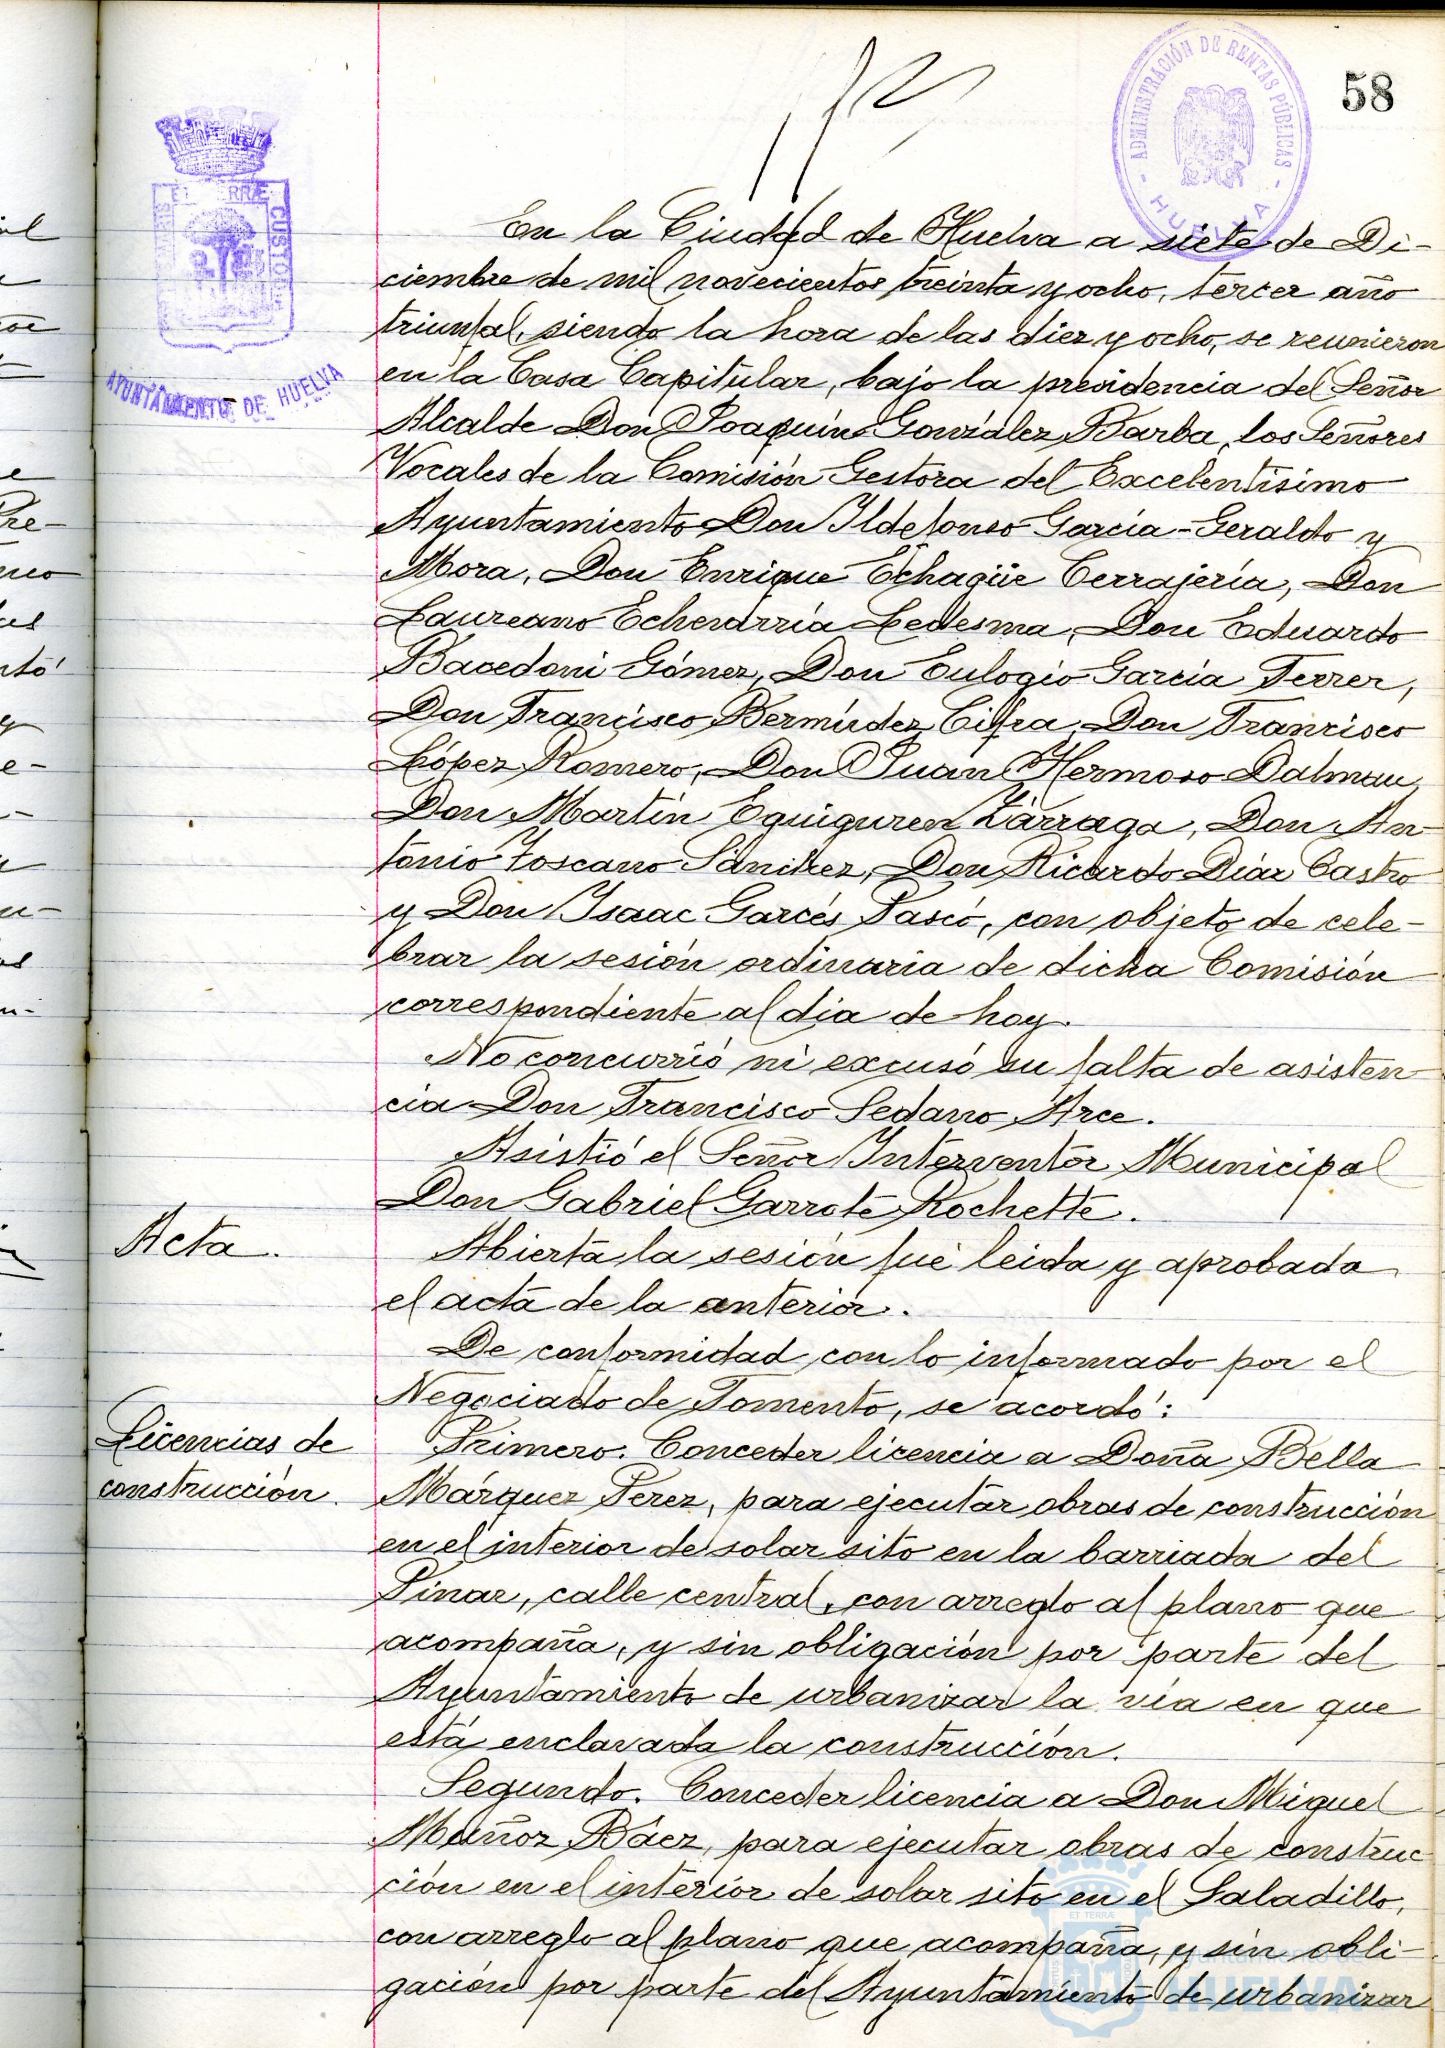 58
ADMINISTRACIÓN DE RENTAS PÚBLICAS
HUELVA
CUSTODIA
AYUNTAMIENTO DE HUELVA
En la Ciudad de Huelva a siete de Di-
ciembre de mil novecientos treinta y ocho, tercer año
triunfal, siendo la hora de las diez y ocho, se reunieron
en la Casa Capitular, bajo la presidencia del Señor
Alcalde Don Joaquín González Barba, los Señores
Vocales de la Comisión Gestora del Excelentísimo
Ayuntamiento Don Ildefonso García-Geraldo y
Mora, Don Enrique Echagüe Cerrajería, Don
Laureano Echevarría Ledesma, Don Eduardo
Bacedoni Gómez, Don Eulogio García Ferrer,
Don Francisco Bermúdez Cifra, Don Francisco
López Romero, Don Juan Hermoso Dalmau,
Don Martín Eguiguren Zárraga, Don An-
tonio Toscano Sánchez, Don Ricardo Díaz Castro
y Don Isaac Garcés Pascó, con objeto de cele-
brar la sesión ordinaria de dicha Comisión
correspondiente al dia de hoy.
No concurrió ni excusó su falta de asisten-
cia Don Francisco Sedano Arce.
Asistió el Señor Interventor Municipal
Don Gabriel Garrote Rochette.
Acta.
Abierta la sesión fué leida y aprobada
el acta de la anterior.
De conformidad con lo informado por el
Negociado de Fomento, se acordó:
Licencias de
construcción.
Primero. Conceder licencia a Doña Bella
Márquez Perez, para ejecutar obras de construcción
en el interior de solar sito en la barriada del
Pinar, calle central, con arreglo al plano que
acompaña, y sin obligación por parte del
Ayuntamiento de urbanizar la vía en que
está enclavada la construcción.
Segundo. Conceder licencia a Don Miguel
Muñoz Báez, para ejecutar obras de construc-
ción en el interior de solar sito en el Saladillo,
con arreglo al plano que acompaña, y sin obli-
gación por parte del Ayuntamiento de urbanizar
Ayuntamiento de
HUELVA